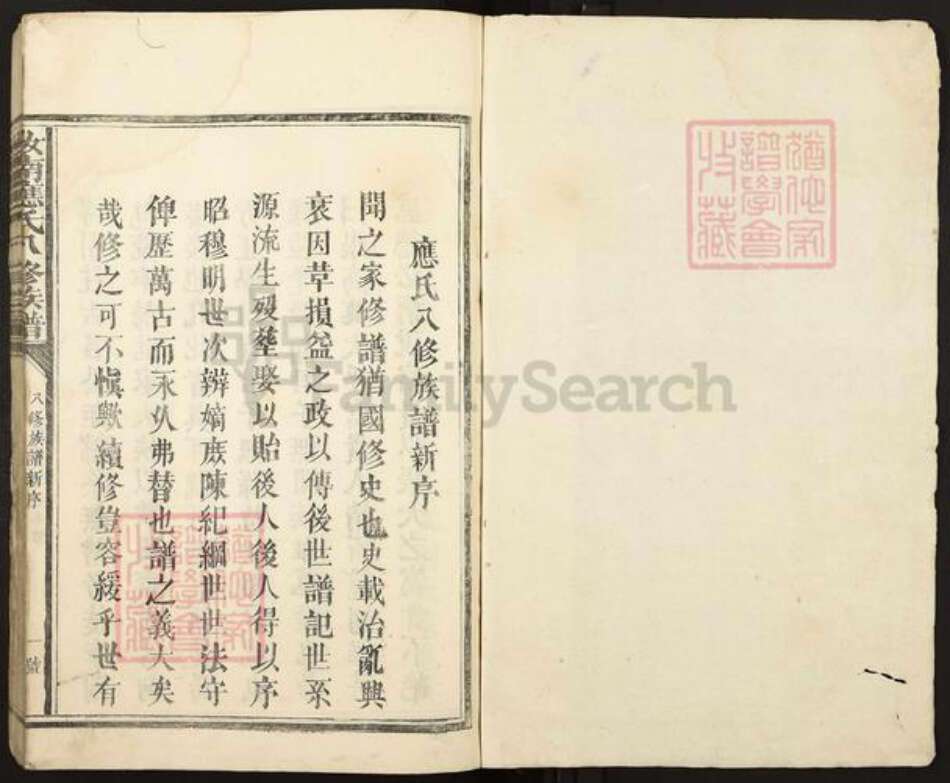 應氏八修族譜新序
聞之家修譜猶國修史也史載治亂興
衰因革損益之政以傳後世譜記世系
源流生歿塟娶以貽後人後人得以序
昭穆明世次辨嫡庶陳紀綱世世法守
俾歷萬古而永久弗替也譜之義大矣
哉修之可不慎歟續修豈容緩乎世有
汝南應氏八修族譜
八修族譜新序
一號
譜學會
收藏
FamilySearch